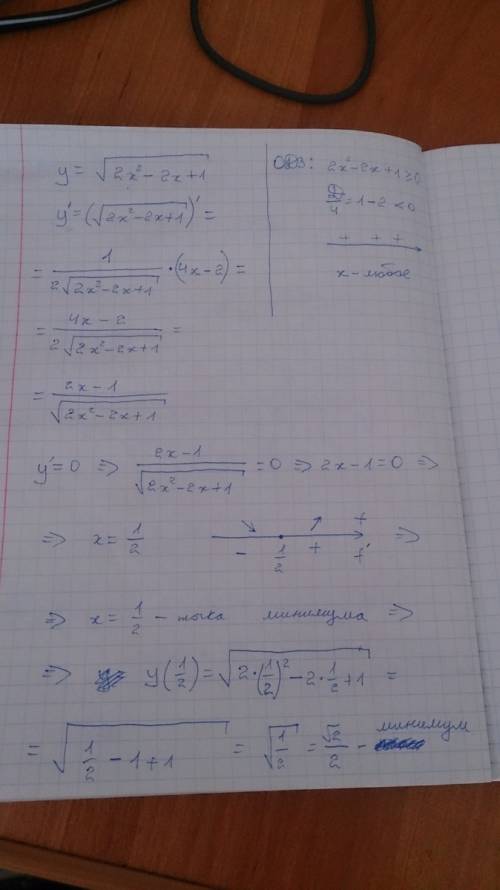 y = √(2x² - 2x + 1)
y' = (√(2x² - 2x + 1))' =
= 1/(2√(2x² - 2x + 1)) • (4x - 2) =
= (4x - 2)/(2√(2x² - 2x + 1)) =
= (2x - 1)/√(2x² - 2x + 1)
ОДЗ: 2x² - 2x + 1 ≥ 0
D/4 = 1 - 2 < 0
+ + +
x - любое
y' = 0 => (2x - 1)/√(2x² - 2x + 1) = 0 => 2x - 1 = 0 =>
=> x = 1/2 ↘ ↗ f - 1/2 + f' =>
=> x = 1/2 - точка минимума =>
=> y(1/2) = √(2•(1/2)² - 2•1/2 + 1) =
= √(1/2 - 1 + 1) = √(1/2) = √2/2 - минимум